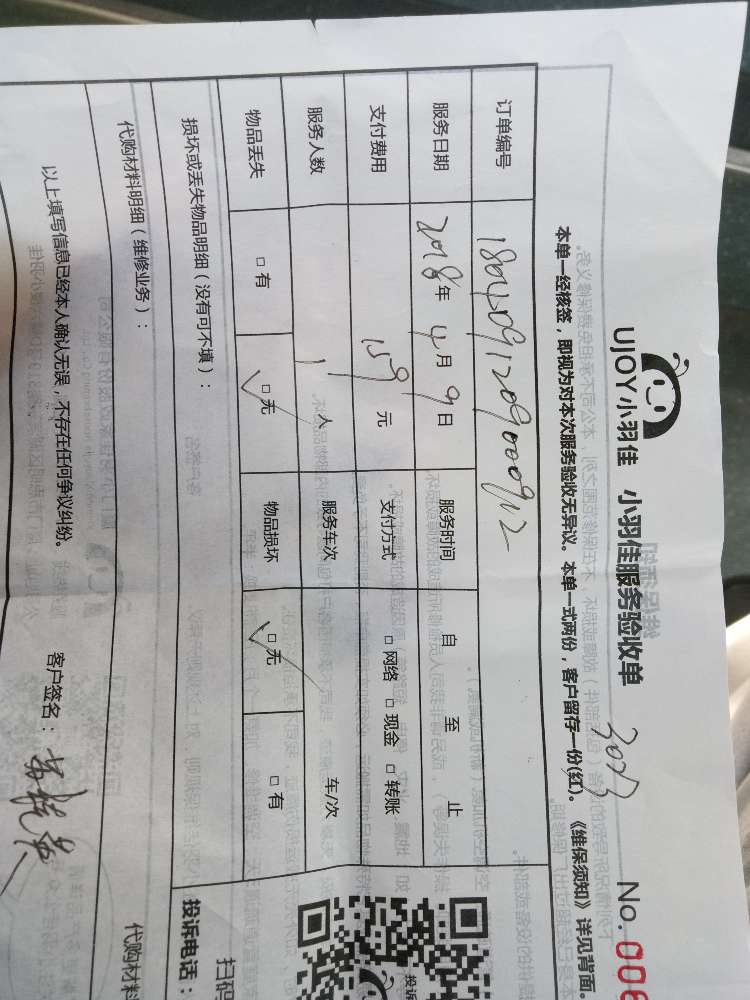 UJOY小羽佳 小羽佳服务验收单 3023 No.006
本单一经核签，即视为对本次服务验收无异议。本单一式两份，客户留存一份(红)。《维保须知》详见背面。
订单编号 180409120900912
服务日期 2018年 4月 9日 服务时间 自 至 止
支付费用 159元 支付方式 □网络 □现金 □转账
服务人数 1人 服务车次 车/次
物品丢失 □有 □无 物品损坏 □无 □有
损坏或丢失物品明细（没有可不填）：
代购材料明细（维修业务）： 代购材料
以上填写信息已经本人确认无误，不存在任何争议纠纷。 客户签名：
投诉
扫码
投诉电话：